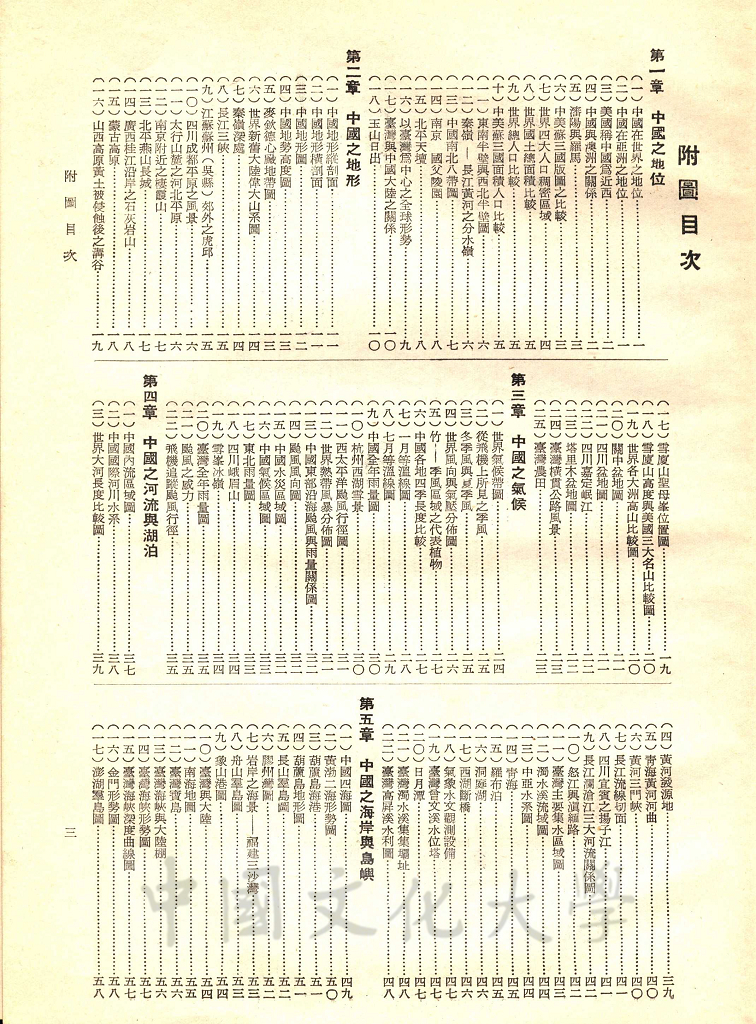 附圖目次
第一章 中國之地位
(一)中國在世界之地位……一
(二)中國在亞洲之地位……一
(三)美國稱中國爲近西……二
(四)中國與澳洲之關係……二
(五)瀋陽與羅馬……三
(六)中美蘇三國版圖之比較……三
(七)世界四大人口稠密區域……四
(八)世界國土總面積比較……五
(九)世界總人口比較……五
(十)中美蘇三國面積人口比較……五
(一一)東南半壁與西北半壁圖……六
(一二)秦嶺—長江黃河之分水嶺……六
(一三)中國南北八帶圖……七
(一四)南京 國父陵園……八
(一五)北平天壇……八
(一六)以臺灣爲中心之全球形勢……九
(一七)臺灣與中國大陸之關係……一〇
(一八)玉山日出……一〇
第二章 中國之地形
(一)中國地形縱剖面……一一
(二)中國地形橫剖面……一一
(三)中國地形圖……一二
(四)中國地勢高度圖……一三
(五)麥欽德心臟地帶圖……一三
(六)世界新舊大陸偉大山系圖……一四
(七)秦嶺深處……一四
(八)長江三峽……一五
(九)江蘇蘇州(吳縣)郊外之虎邱……一五
(一〇)四川成都平原之風景……一六
(一一)太行山麓之河北平原……一六
(一二)南京附近之棲霞山……一七
(一三)北平燕山長城……一七
(一四)廣西桂江沿岸之石灰岩山……一八
(一五)蒙古高原……一八
(一六)山西高原黃土被侵蝕後之溝谷……一九
(一七)雪廈山聖母峯位置圖……一九
(一八)雪廈山高度與美國三大名山比較圖……二〇
(一九)世界各大洲高山比較圖……二〇
(二〇)關中盆地圖……二一
(二一)四川盆地圖……二一
(二二)四川嘉定岷江……二二
(二三)塔里木盆地圖……二二
(二四)臺灣橫貫公路風景……二三
(二五)臺灣農田……二三
第三章 中國之氣候
(一)世界氣候帶圖……二四
(二)從飛機上所見之季風……二五
(三)冬季風與夏季風……二五
(四)世界風向與氣壓分佈圖……二六
(五)竹——季風區域之代表植物……二七
(六)中國各地四季長度比較……二七
(七)一月等溫線圖……二八
(八)七月等溫線圖……二九
(九)中國全年雨量圖……三〇
(一〇)杭州西湖雪景……三〇
(一一)西太平洋颱風行徑圖……三一
(一二)世界熱帶風暴分佈圖……三一
(一三)中國東部沿海颱風與雨量關係圖……三二
(一四)颱風風向圖……三二
(一五)中國水災區域圖……三三
(一六)中國氣候區域圖……三三
(一七)東北雨量圖……三三
(一八)四川峨眉山……三四
(一九)雪峯冰嶺……三四
(二〇)臺灣全年雨量圖……三五
(二一)颱風之威力……三五
(二二)飛機追蹤颱風行徑……三五
第四章 中國之河流與湖泊
(一)中國內流區域圖……三七
(二)中國國際河川水系……三八
(三)世界大河長度比較圖……三九
(四)黃河發源地……三九
(五)青海黃河河曲……四〇
(六)黃河三門峽……四〇
(七)長江流線切面……四一
(八)四川宜賓之揚子江……四一
(九)長江瀾滄江三大河流關係圖……四二
(一〇)怒江與滇緬路……四二
(一一)臺灣主要集水區域圖……四三
(一二)濁水溪流域圖……四四
(一三)中亞水系圖……四四
(一四)青海……四五
(一五)羅布泊……四五
(一六)洞庭湖……四六
(一七)西湖斷橋……四六
(一八)氣象水文觀測設備……四七
(一九)臺灣曾文溪水位塔……四七
(二〇)日月潭……四七
(二一)臺灣濁水溪集集壩址……四八
(二二)臺灣高屏溪水利圖……四八
第五章 中國之海岸與島嶼
(一)中國四海圖……四九
(二)黃渤二海形勢圖……五〇
(三)葫蘆島海港……五一
(四)葫蘆島地形圖……五一
(五)長山羣島圖……五二
(六)膠州灣圖……五二
(七)岩岸之海景——福建三沙灣……五三
(八)舟山羣島圖……五三
(九)象山港圖……五四
(一〇)臺灣與大陸……五四
(一一)南海地圖……五五
(一二)臺灣寶島……五六
(一三)臺灣海峽與大陸棚……五六
(一四)臺灣海峽形勢圖……五七
(一五)臺灣海峽深度曲線圖……五七
(一六)金門形勢圖……五八
(一七)澎湖羣島圖……五八
附圖目次
三
中國文化大學